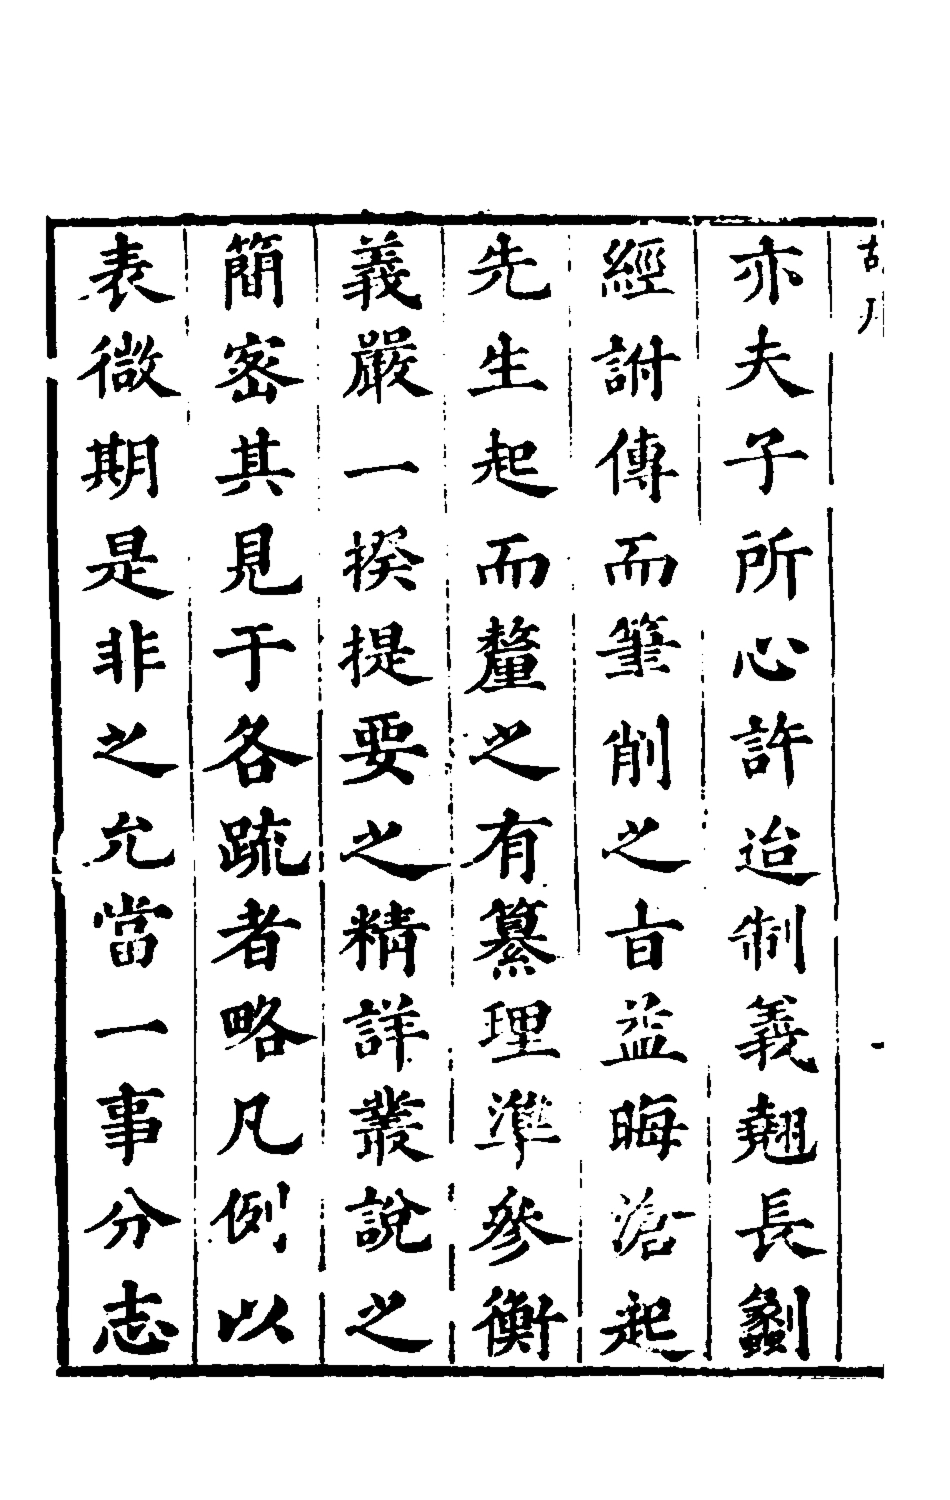 亦夫子所心許迨制義翹長劙
經訃傳而筆削之㫖益晦滄起
先生起而釐之有纂理準參衡
義嚴一揆提要之精詳叢說之
簡密其見于各疏者略凡例以
表微期是非之允當一事分志